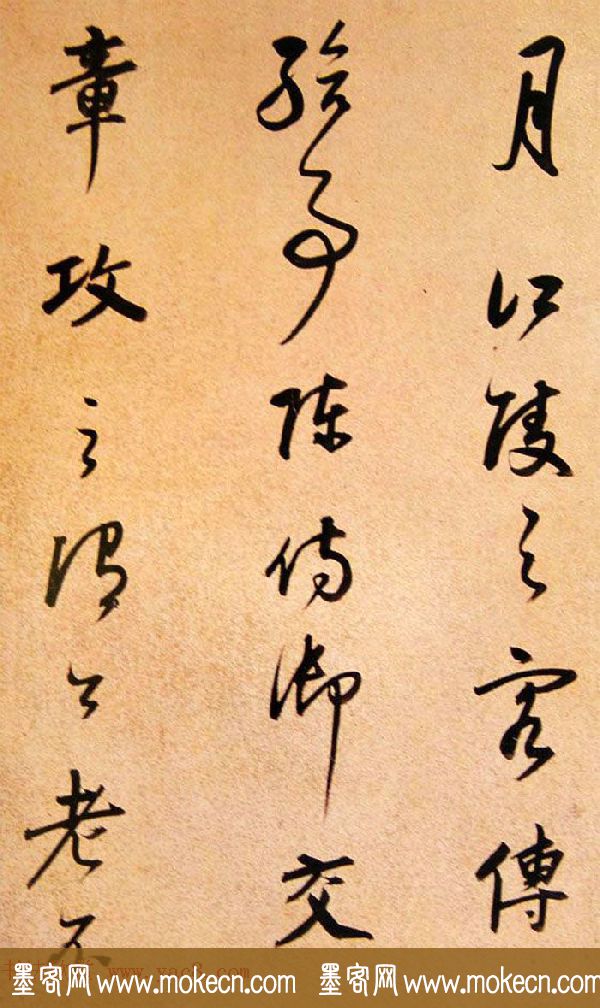 月江陵之客傳
給事陳侍御交
章攻之謂公老不
墨客网 www.mokecn.com 墨客网 www.mokecn.com